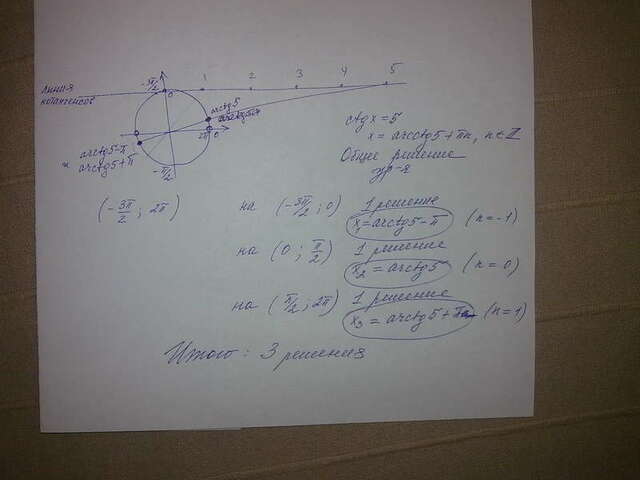 линия
котангенсов
-3π/2
0
1
2
3
4
5
arcctg5
2π 0
arcctg5-π
и arcctg5+π
-π/2
ctgx=5
x = arcctg5+πn, n∈Z
Общее решение
ур-я
(-3π/2 ; 2π)
на (-3π/2 ; 0) 1 решение
x₁=arcctg5-π (n=-1)
на (0 ; π/2) 1 решение
x₂ = arcctg5 (n=0)
на (π/2 ; 2π) 1 решение
x₃ = arcctg5+π (n=1)
Итого: 3 решения